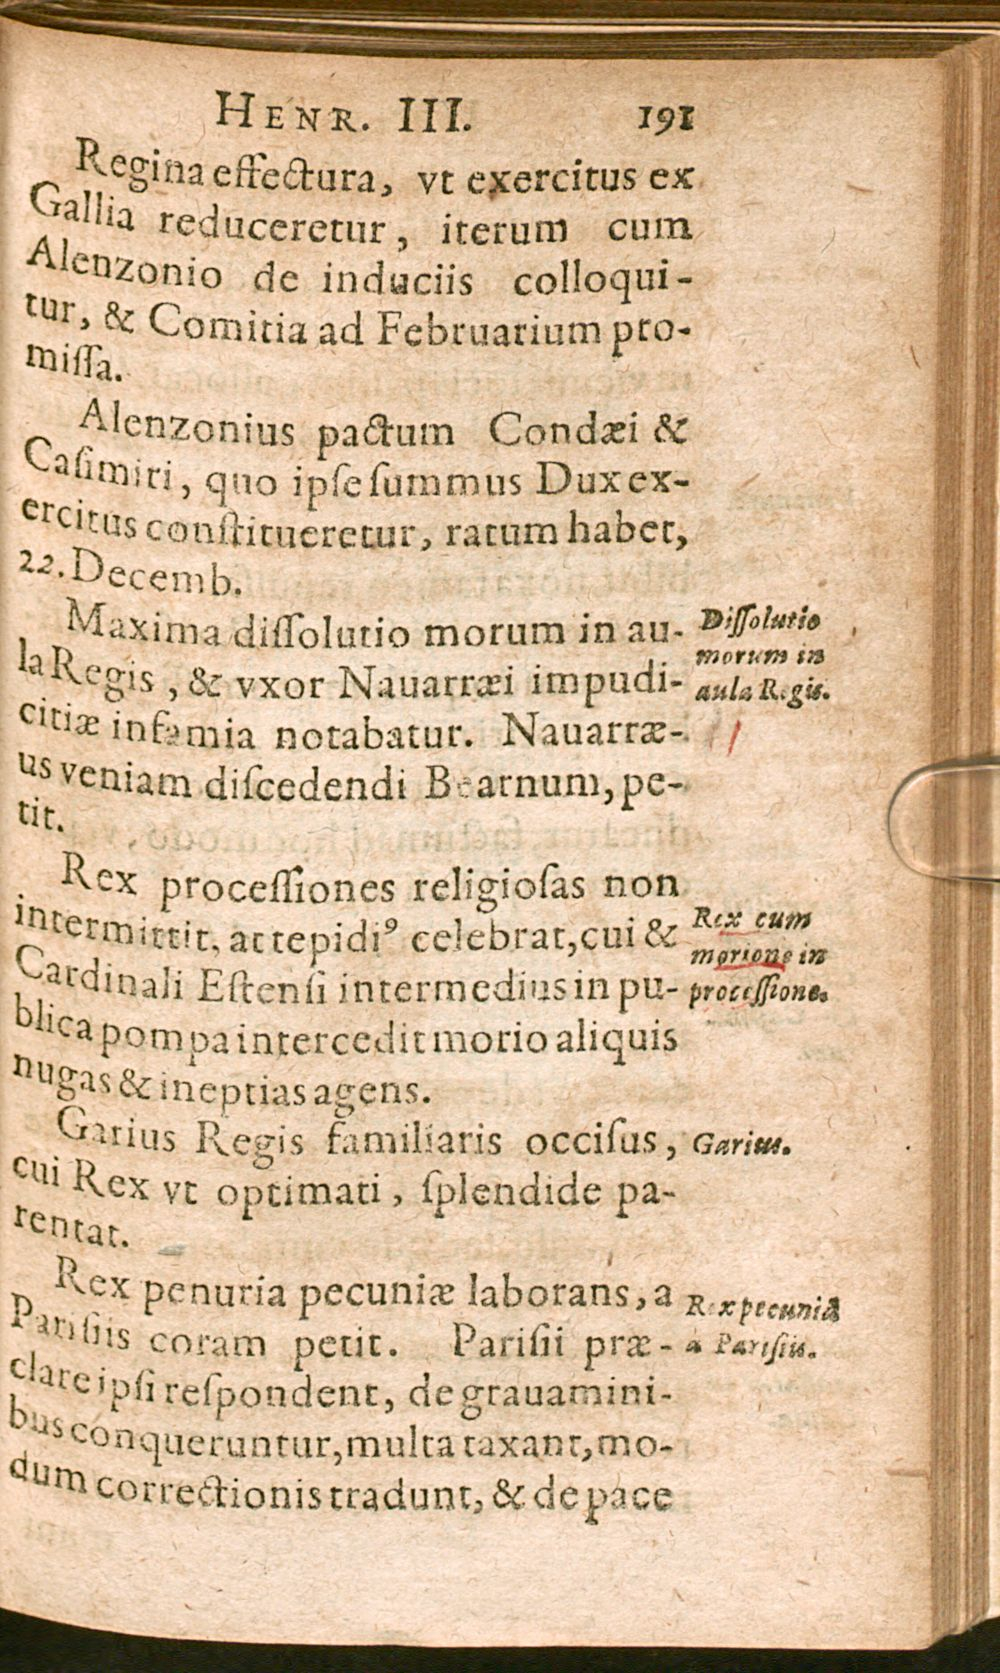 HENR. III. 191
Regina effectura, vt exercitus ex
Gallia reduceretur, iterum cum
Alenzonio de induciis colloqui-
tur, & Comitia ad Februarium pro-
miſſa.
Alenzonius pactum Condæi &
Caſimiri, quo ipſe ſummus Dux ex-
ercitus conſtitueretur, ratum habet,
22. Decemb.
Maxima diſſolutio morum in au-
la Regis, & vxor Nauarræi impudi-
citiæ infamia notabatur. Nauarræ-
us veniam diſcedendi Bearnum, pe-
tit.
Diſſolutio
morum in
aula Regis.
Rex proceſſiones religioſas non
intermittit, at tepidiꝰ celebrat, cui &
Cardinali Eſtenſi intermedius in pu-
blica pompa intercedit morio aliquis
nugas & ineptias agens.
Rex cum
morione in
proceſſione.
Garius Regis familiaris occiſus,
cui Rex vt optimati, ſplendide pa-
rentat.
Garius.
Rex penuria pecuniæ laborans, a
Pariſiis coram petit. Pariſii præ-
clare ipſi reſpondent, de grauamini-
bus conqueruntur, multa taxant, mo-
dum correctionis tradunt, & de pace
Rex pecuniã
a Pariſiis.